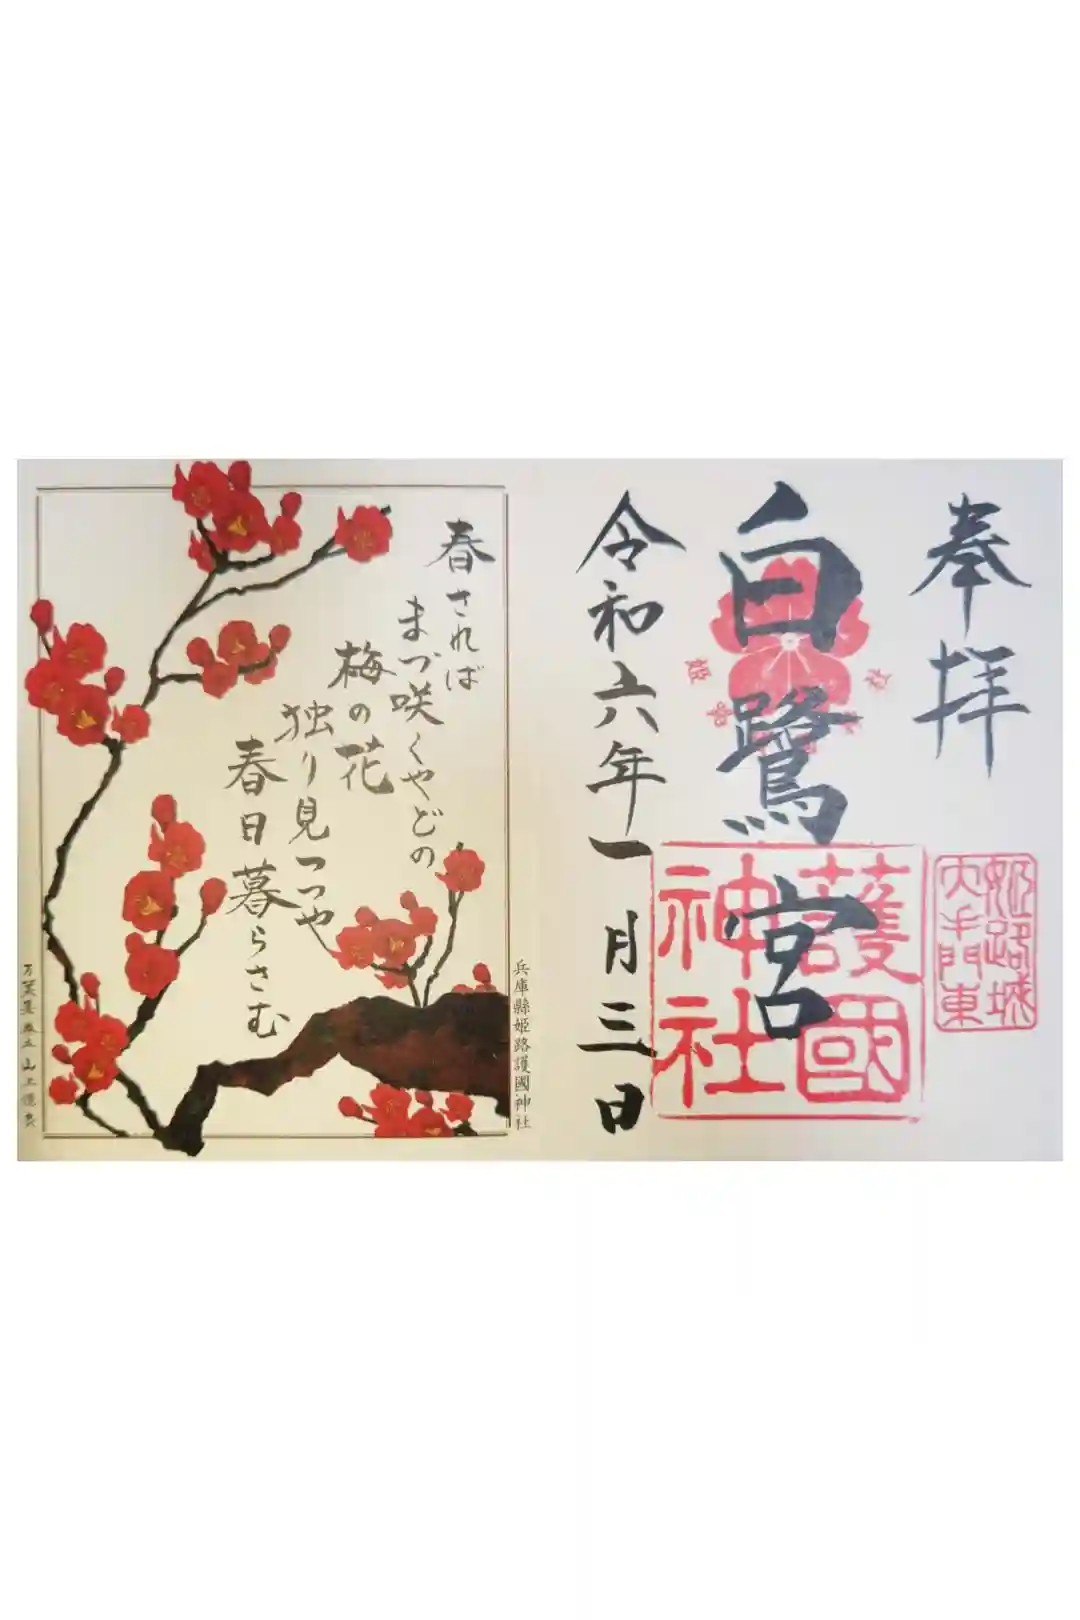 奉拝
白鷺宮
令和六年一月三日
姫路城
大手門東
護國
神社
春されば
まづ咲くやどの
梅の花
独り見つつや
春日暮らさむ
兵庫縣姫路護國神社
万葉集 巻五 山上憶良